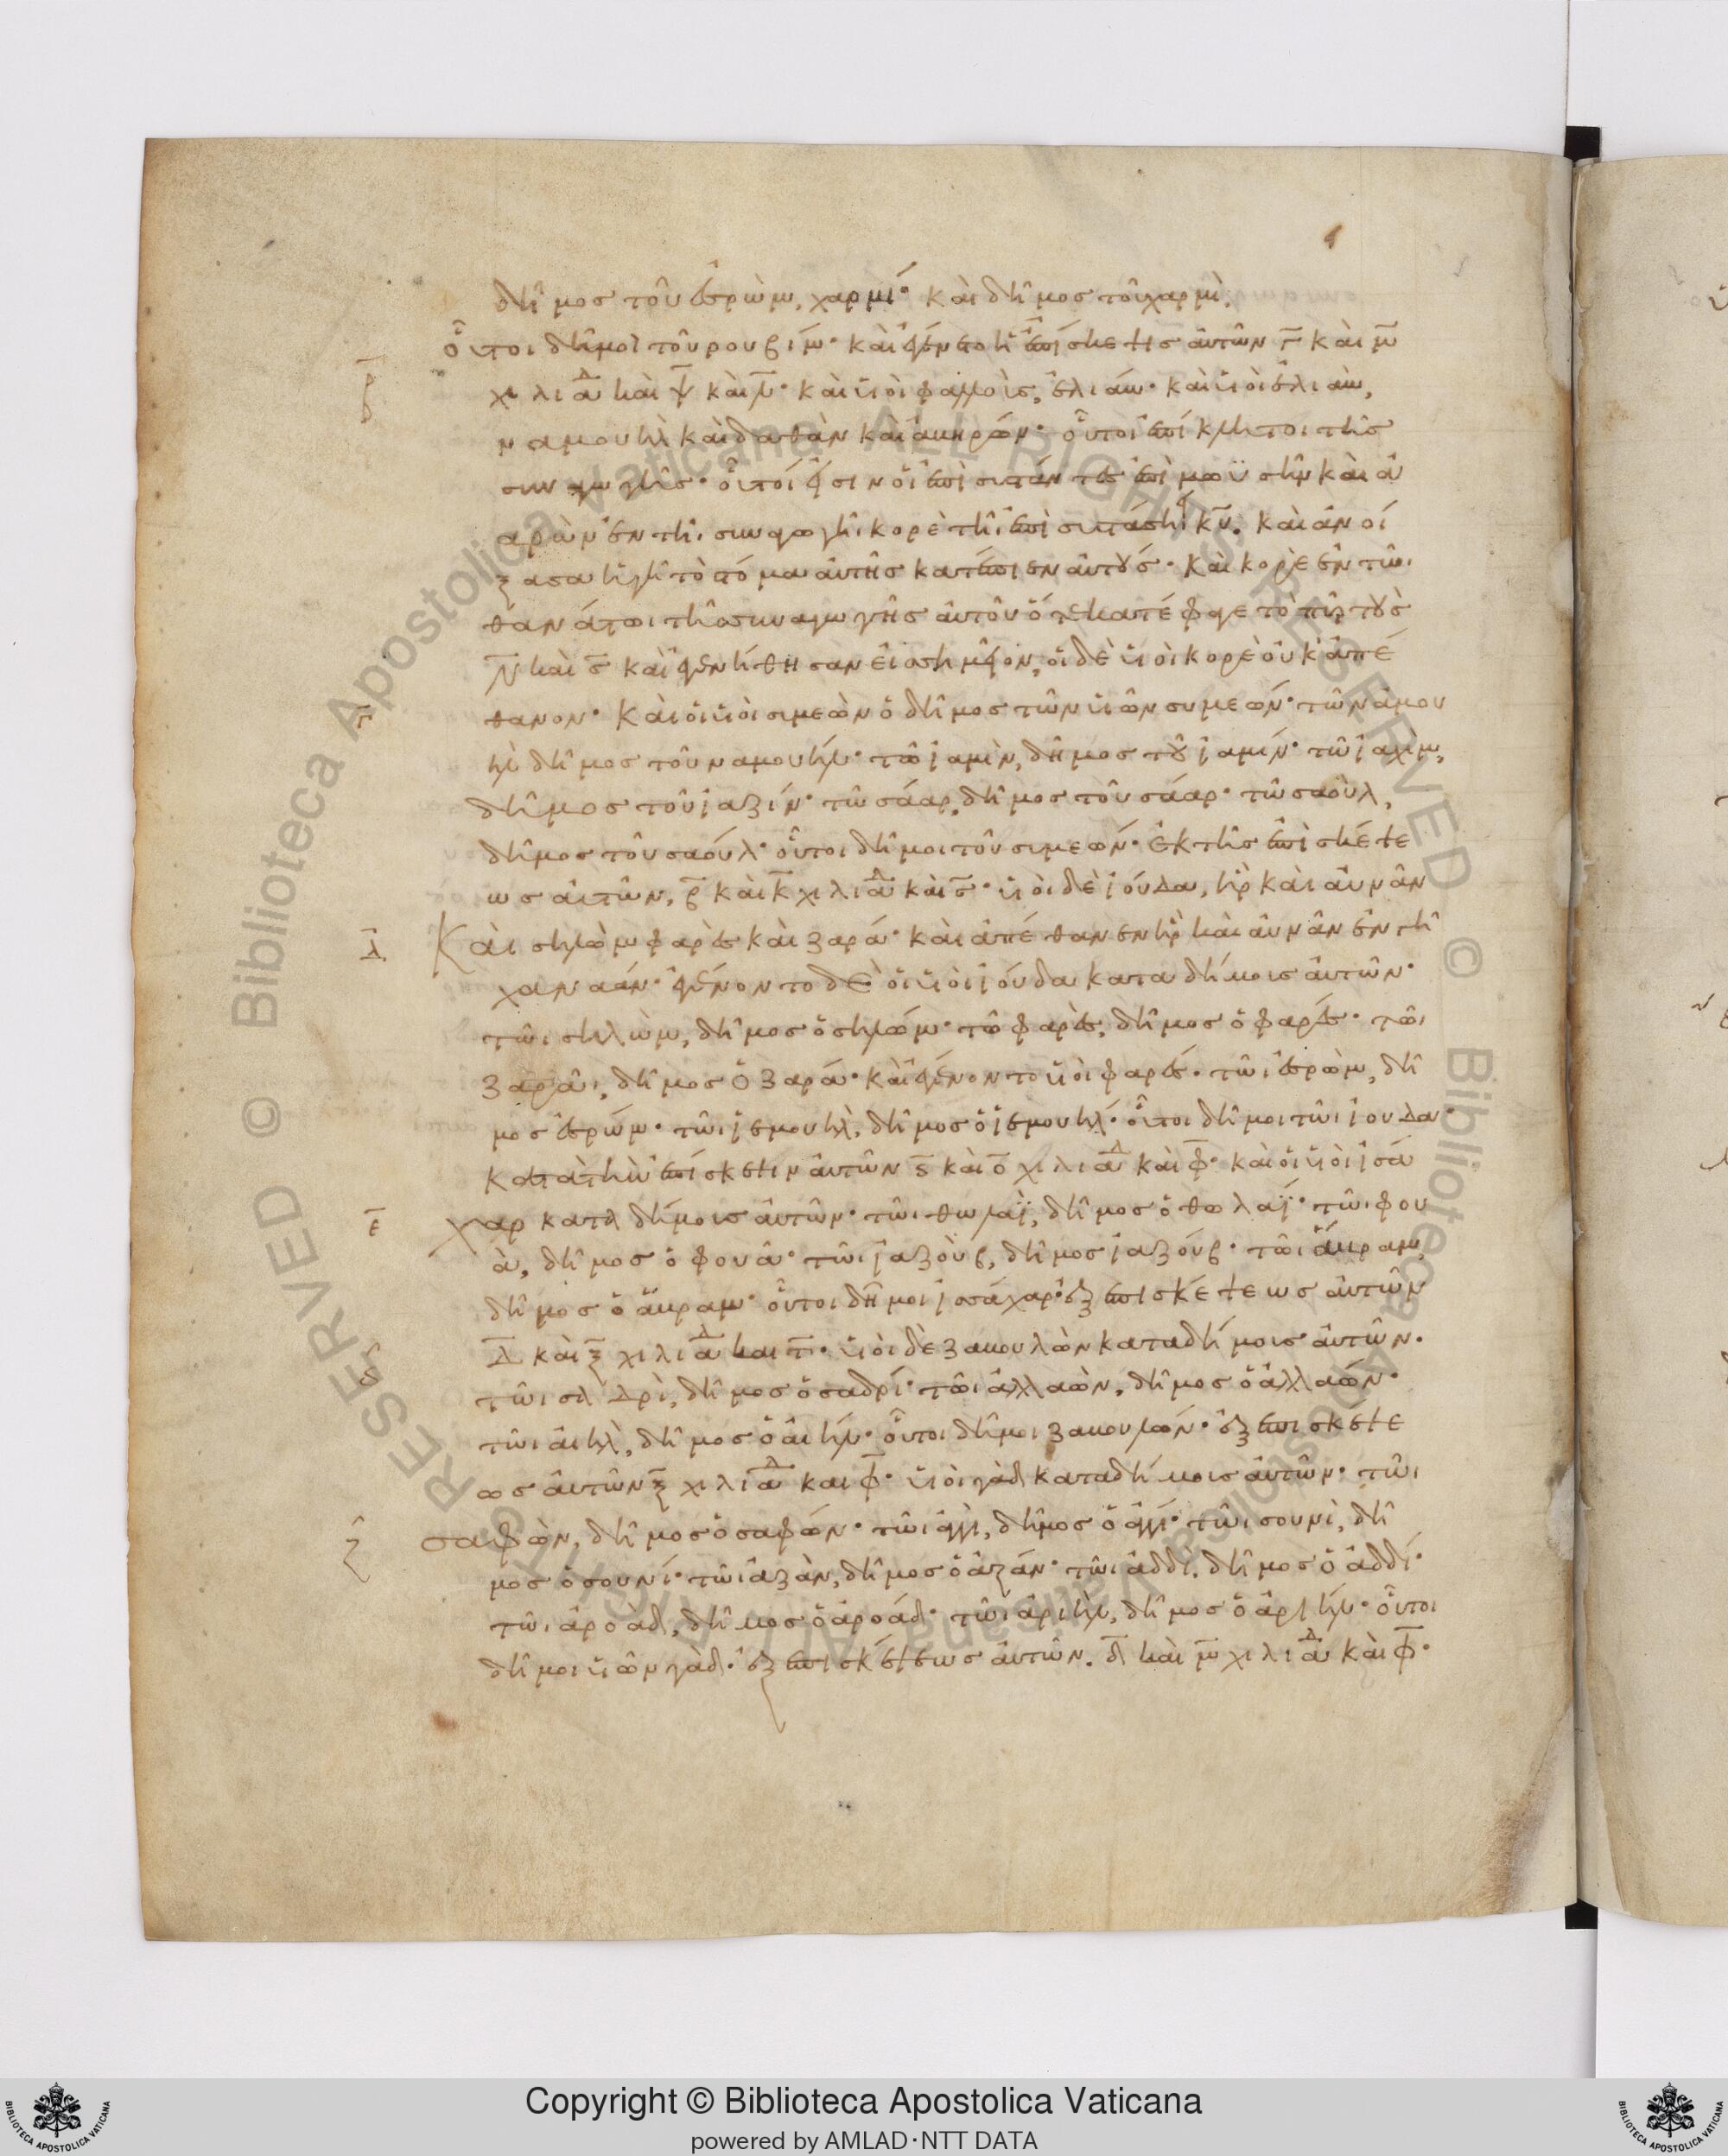 δῆμος τοῦ ἐσρὼμ, χαρμί· καὶ δῆμος τοῦ χαρμὶ,
οὗτοι δῆμοι τοῦ ρουβίμ· καὶ ἐγένετο ἡ ἐπίσκεψις αὐτῶν γ καὶ μ
β
χιλιάδ καὶ ψ καὶ λ· καὶ υἱοὶ φαλλοὺς, ἐλιάμ· καὶ υἱοὶ ἐλιὰμ,
ναμουὴλ καὶ δαθὰν καὶ ἀβιρών· οὗτοι ἐπίκλητοι τῆς
συναγωγῆς· οὗτοί εἰσιν οἱ ἐπισυστάντες ἐπὶ μωϋσῆν καὶ ἀ
αρὼν ἐν τῆι συναγωγῆι κορὲ τῆι ἐπισυστάσει κυ. καὶ ἀνοί
ξασα ἡ γῆ τὸ στόμα αὐτῆς κατέπιεν αὐτούς· καὶ κορὲ ἐν τῶι
θανάτωι τῆς συναγωγῆς αὐτοῦ ὅτε κατέφαγε τὸ πῦρ τοὺς
ν καὶ ς καὶ ἐγενήθησαν ἐν σημείωι, οἱ δὲ υἱοὶ κορὲ οὐκ ἀπέ
γ
θανον· καὶ οἱ υἱοὶ σιμεὼν ὁ δῆμος τῶν υἱῶν συμεών· τῶ ναμου
ὴλ δῆμος τοῦ ναμουήλ· τῶ ἰαμὶν, δῆμος τοῦ ἰαμίν· τῶ ἰαχὶμ,
δῆμος τοῦ ἰαζίν· τῶ σάαρ, δῆμος τοῦ σάαρ· τῶ σαοὺλ,
δῆμος τοῦ σαούλ· οὗτοι δῆμοι τοῦ σιμεών· ἐκ τῆς ἐπισκέψε
ως αὐτῶν, β καὶ κ χιλιάδ καὶ ς· υἱοὶ δὲ ἰούδα, ἢρ καὶ αὐνὰν
δ
Καὶ σηλὼμ φαρὲς καὶ ζαρά· καὶ ἀπέθανεν ἢρ καὶ αὐνὰν ἐν γῆ
χαναάν· ἐγένοντο δὲ οἱ υἱοὶ ἰούδα κατα δήμους αὐτῶν·
τῶι σηλὼμ, δῆμος ὁ σηλώμ· τῶ φαρὲς, δῆμος ὁ φαρές· τῶι
ζαρὰι, δῆμος ὁ ζαρά· καὶ ἐγένοντο υἱοὶ φαρές· τῶι ἐσρὼμ, δῆ
μος ἐσρώμ· τῶι ἰεμουὴλ, δῆμος ὁ ἰεμουήλ· οὗτοι δῆμοι τῶι ἰουδα·
κατὰ τὴν ἐπίσκεψιν αὐτῶν ς καὶ ο χιλιάδ καὶ φ· καὶ οἱ υἱοὶ ἰσά
ε
χαρ κατα δήμους αὐτῶν· τῶι θωλαῒ, δῆμος ὁ θωλαΐ· τῶι φου
ὰ, δῆμος ὁ φουά· τῶι ἰαζοὺβ, δῆμος ἰαζούβ· τῶι ἄμραμ,
δῆμος ὁ ἄμραμ· οὗτοι δῆμοι ἰσσάχαρ· ἐξ ἐπισκέψεως αὐτῶν
ς
δ καὶ ξ χιλιάδ και τ· υἱοὶ δὲ ζαβουλὼν κατα δήμους αὐτῶν·
τῶι σαδρὶ, δῆμος ὁ σαδρί· τῶι ἀλλαὼν, δῆμος ὁ ἀλλαών·
τῶι ἀιὴλ, δῆμος ὁ ἀιήλ· οὗτοι δῆμοι ζαβουλών· ἐξ ἐπισκέψε
ως αὐτῶν ξ χιλιάδ και φ· υἱοὶ γὰδ κατα δήμους αὐτῶν· τῶι
ζ
σαφὼν, δῆμος ὁ σαφών· τῶι ἀγγὶ, δῆμος ὁ ἀγγί· τῶι σουνὶ, δῆ
μος ὁ σουνί· τῶι ἀζὰν, δῆμος ὁ ἀζάν· τῶι ἀδδὶ. δῆμος ὁ ἀδδί·
τῶι ἀροὰδ, δῆμος ὁ ἀροάδ· τῶι ἀριὴλ, δῆμος ὁ ἀριήλ· οὗτοι
δῆμοι υἱῶν γὰδ· ἐξ ἐπισκέψεως αὐτῶν. δ καὶ μ χιλιάδ καὶ φ·
© Biblioteca Apostolica Vaticana ALL RIGHTS RESERVED
Copyright © Biblioteca Apostolica Vaticana
powered by AMLAD·NTT DATA